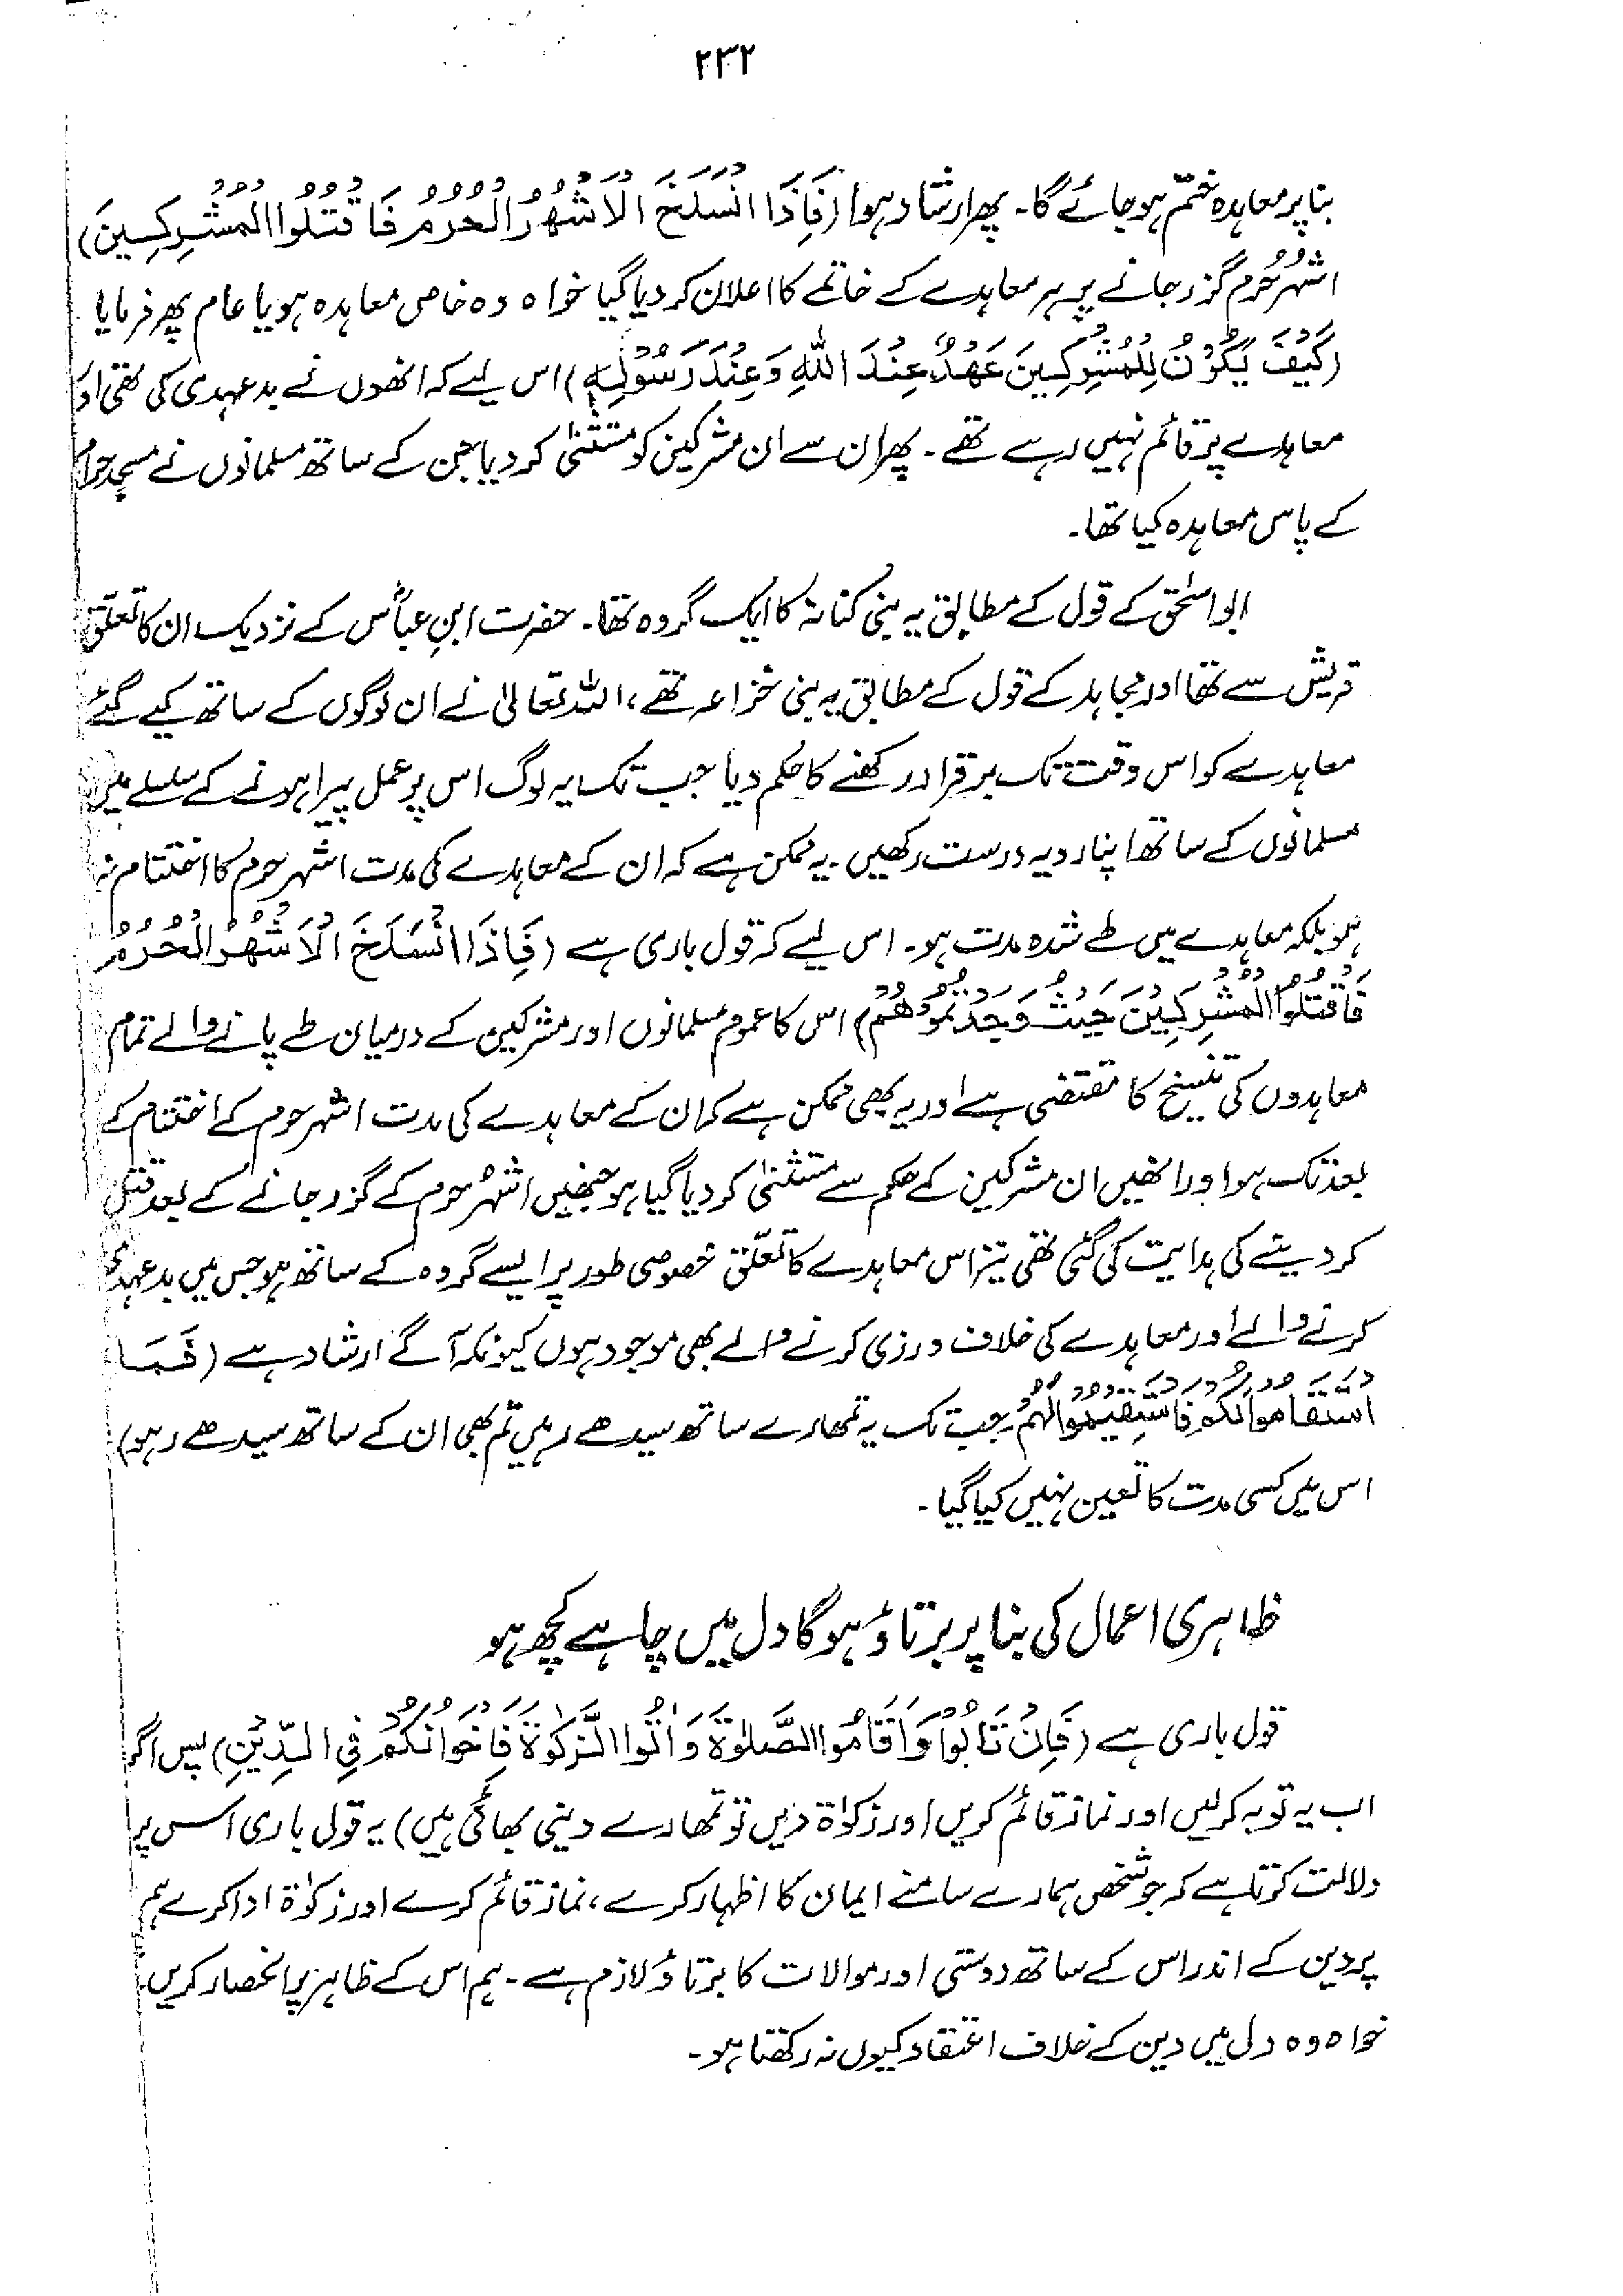 ۲۳۲
بنا پر معاہدہ ختم ہو جائے گا۔ پھر ارشاد ہوا (فَاِذَا انْسَلَخَ الْاَشْهُرُ الْحُرُمُ فَاقْتُلُوا الْمُشْرِكِيْنَ)
اشہر حُرم گزر جانے پر ہر معاہدے کے خاتمے کا اعلان کر دیا گیا خواہ وہ خاص معاہدہ ہو یا عام پھر فرمایا
(كَيْفَ يَكُوْنُ لِلْمُشْرِكِيْنَ عَهْدٌ عِنْدَ اللّٰهِ وَعِنْدَ رَسُوْلِهٖ) اس لیے کہ انھوں نے بد عہدی کی تھی اور
معاہدے پر قائم نہیں رہے تھے۔ پھر ان سے ان مشرکین کو مستثنیٰ کر دیا جن کے ساتھ مسلمانوں نے مسجد حرام
کے پاس معاہدہ کیا تھا۔
ابو اسحٰق کے قول کے مطابق یہ بنی کنانہ کا ایک گروہ تھا۔ حضرت ابنِ عباسؓ کے نزدیک ان کا تعلّق
قریش سے تھا اور مجاہد کے قول کے مطابق یہ بنی خزاعہ تھے، اللہ تعالیٰ نے ان لوگوں کے ساتھ کیے گئے
معاہدے کو اس وقت تک برقرار رکھنے کا حکم دیا جب تک یہ لوگ اس پر عمل پیرا ہونے کے سلسلے میں
مسلمانوں کے ساتھ اپنا رویہ درست رکھیں۔ یہ ممکن ہے کہ ان کے معاہدے کی مدت اشہر حرم کا اختتام نہ
ہو بلکہ معاہدے میں طے شدہ مدت ہو۔ اس لیے کہ قول باری ہے (فَاِذَا انْسَلَخَ الْاَشْهُرُ الْحُرُمُ
فَاقْتُلُوا الْمُشْرِكِيْنَ حَيْثُ وَجَدْتُّمُوْهُمْ) اس کا عموم مسلمانوں اور مشرکین کے درمیان طے پانے والے تمام
معاہدوں کی تنسیخ کا مقتضی ہے اور یہ بھی ممکن ہے کہ ان کے معاہدے کی مدت اشہر حرم کے اختتام کے
بعد تک ہو اور انھیں ان مشرکین کے حکم سے مستثنیٰ کر دیا گیا ہو جنھیں اشہُر حرم کے گزر جانے کے بعد قتل
کر دینے کی ہدایت کی گئی تھی نیز اس معاہدے کا تعلّق خصوصی طور پر ایسے گروہ کے ساتھ ہو جس میں بد عہدی
کرنے والے اور معاہدے کی خلاف ورزی کرنے والے بھی موجود ہوں کیونکہ آگے ارشاد ہے (فَمَا
اسْتَقَامُوْا لَكُمْ فَاسْتَقِيْمُوْا لَهُمْ جب تک یہ تمھارے ساتھ سیدھے رہیں تم بھی ان کے ساتھ سیدھے رہو)
اس میں کسی مدت کا تعین نہیں کیا گیا۔
ظاہری اعمال کی بنا پر برتاؤ ہو گا دل میں چاہے کچھ ہو
قول باری ہے (فَاِنْ تَابُوْا وَاَقَامُوا الصَّلٰوةَ وَاٰتَوُا الزَّكٰوةَ فَاِخْوَانُكُمْ فِي الدِّيْنِ) پس اگر
اب یہ توبہ کر لیں اور نماز قائم کریں اور زکوٰۃ دیں تو تمھارے دینی بھائی ہیں) یہ قول باری اس پر
دلالت کرتا ہے کہ جو شخص ہمارے سامنے ایمان کا اظہار کرے، نماز قائم کرے اور زکوٰۃ ادا کرے ہم
پر دین کے اندر اس کے ساتھ دوستی اور موالات کا برتاؤ لازم ہے۔ ہم اس کے ظاہر پر انحصار کریں
خواہ وہ دل میں دین کے خلاف اعتقاد کیوں نہ رکھتا ہو۔